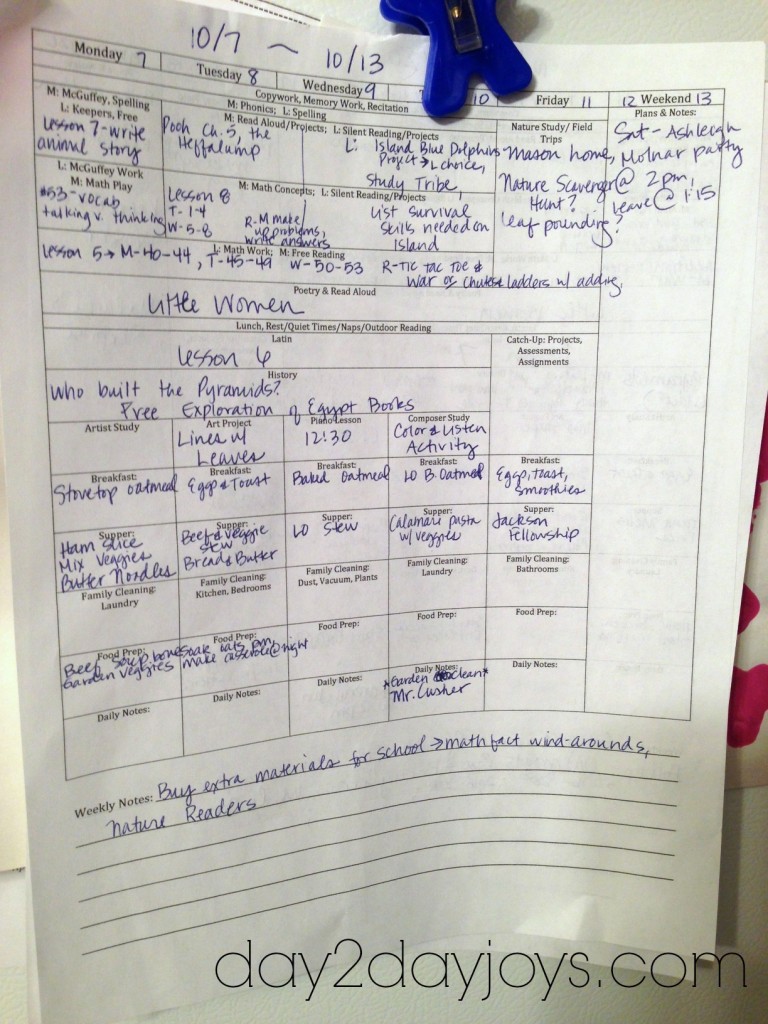 10/7 ~ 10/13
Monday 7 Tuesday 8 Wednesday 9 T 10 Friday 11 12 Weekend 13
Copywork, Memory Work, Recitation
M: McGuffey, Spelling
L: Keepers, Free
Lesson 7-write
animal story
M: Phonics; L: Spelling
M: Read Aloud/Projects; L: Silent Reading/Projects
Pooh Ch. 5, the
Heffalump
L: Island Blue Dolphins
Project → L choice,
Study Tribe,
Nature Study/ Field
Trips
Mason home,
Nature Scavenger
Hunt?
leaf pounding?
Plans & Notes:
Sat - Ashleigh
Molnar party
@ 2pm,
leave @ 1:15
L: McGuffey Work
M: Math Play
#53-vocab
talking v. thinking
M: Math Concepts; L: Silent Reading/Projects
Lesson 8
T-1-4
W-5-8
R-M make
up problems,
write answers
List survival
skills needed on
Island
L: Math Work; M: Free Reading
Lesson 5→ M-40-44, T-45-49 W-50-53 R-Tic Tac Toe &
War or chutes & ladders w/ adding.
Poetry & Read Aloud
Little Women
Lunch, Rest/Quiet Times/Naps/Outdoor Reading
Latin
Lesson 6
Catch-Up: Projects,
Assessments,
Assignments
History
Who built the Pyramids?
Free Exploration of Egypt Books
Artist Study
Art Project
Lines w/
Leaves
Piano Lesson
12:30
Composer Study
Color & Listen
Activity
Breakfast:
Stovetop oatmeal
Breakfast:
Eggs & Toast
Breakfast:
Baked Oatmeal
Breakfast:
LO B. Oatmeal
Breakfast:
Eggs, toast,
smoothies
Supper:
Ham Slice
Mix Veggies
Butter Noodles
Supper:
Beef & Veggie
Stew
Bread & Butter
Supper:
LO Stew
Supper:
Calamari pasta
w/ veggies
Supper:
Jackson
Fellowship
Family Cleaning:
Laundry
Family Cleaning:
Kitchen, Bedrooms
Family Cleaning:
Dust, Vacuum, Plants
Family Cleaning:
Laundry
Family Cleaning:
Bathrooms
Food Prep:
Beef Soup bone
Garden Veggies
Food Prep:
Soak oats pm,
make casserole @ night
Food Prep:
Food Prep:
Food Prep:
Daily Notes:
Daily Notes:
Daily Notes:
Daily Notes:
*Garden clean*
Mr. Cusher
Daily Notes:
Weekly Notes: Buy extra materials for school → math fact wind-arounds,
Nature Readers
day2dayjoys.com